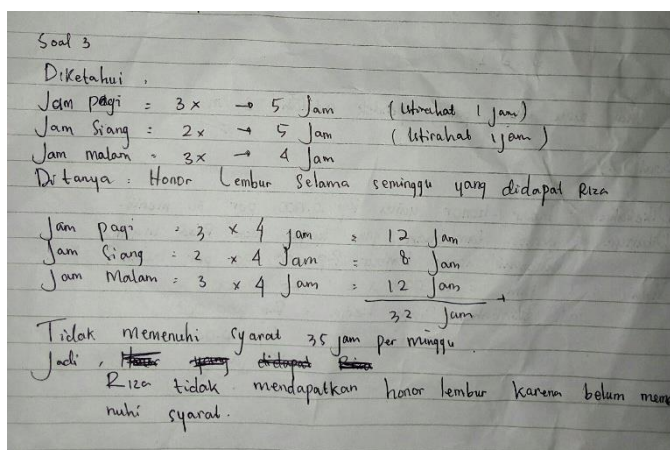 Soal 3
Diketahui,
Jam pagi = 3x → 5 Jam (Istirahat 1 jam)
Jam Siang = 2x → 5 Jam (Istirahat 1 jam)
Jam malam = 3x → 4 Jam
Ditanya : Honor Lembur Selama seminggu yang didapat Riza
Jam pagi = 3 x 4 jam = 12 Jam
Jam Siang = 2 x 4 Jam = 8 Jam
Jam Malam = 3 x 4 Jam = 12 Jam +
32 Jam
Tidak memenuhi syarat 35 jam per minggu.
Jadi, didapat Riza
Riza tidak mendapatkan honor lembur karena belum meme
nuhi syarat.